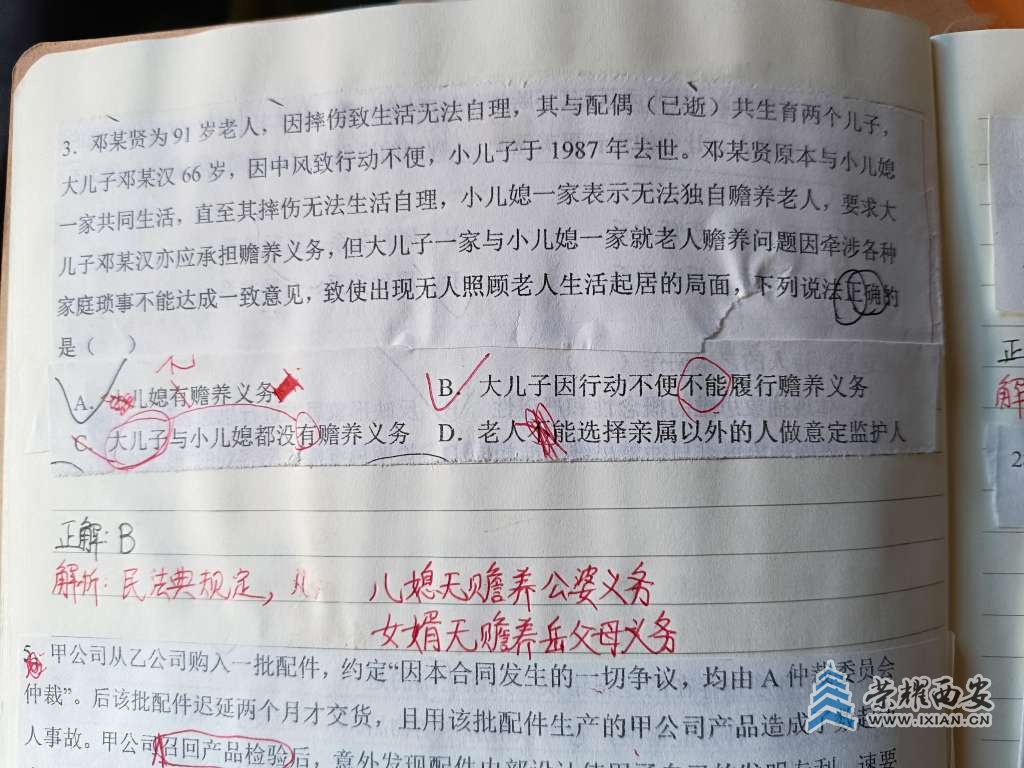 3. 邓某贤为 91 岁老人，因摔伤致生活无法自理，其与配偶（已逝）共生育两个儿子，
大儿子邓某汉 66 岁，因中风致行动不便，小儿子于 1987 年去世。邓某贤原本与小儿媳
一家共同生活，直至其摔伤无法生活自理，小儿媳一家表示无法独自赡养老人，要求大
儿子邓某汉亦应承担赡养义务，但大儿子一家与小儿媳一家就老人赡养问题因牵涉各种
家庭琐事不能达成一致意见，致使出现无人照顾老人生活起居的局面，下列说法正确的
是（ ）
不
A. 儿媳有赡养义务 B. 大儿子因行动不便不能履行赡养义务
C. 大儿子与小儿媳都没有赡养义务 D. 老人不能选择亲属以外的人做意定监护人
正解：B
解析：民法典规定， 儿媳无赡养公婆义务
女婿无赡养岳父母义务
正
解
2
5. 甲公司从乙公司购入一批配件，约定“因本合同发生的一切争议，均由 A 仲裁委员会
仲裁”。后该批配件迟延两个月才交货，且用该批配件生产的甲公司产品造成
人事故。甲公司召回产品检验后，意外发现配件内部设计使用了自己的发明专利，速要
荣耀西安
WWW.IXIAN.CN